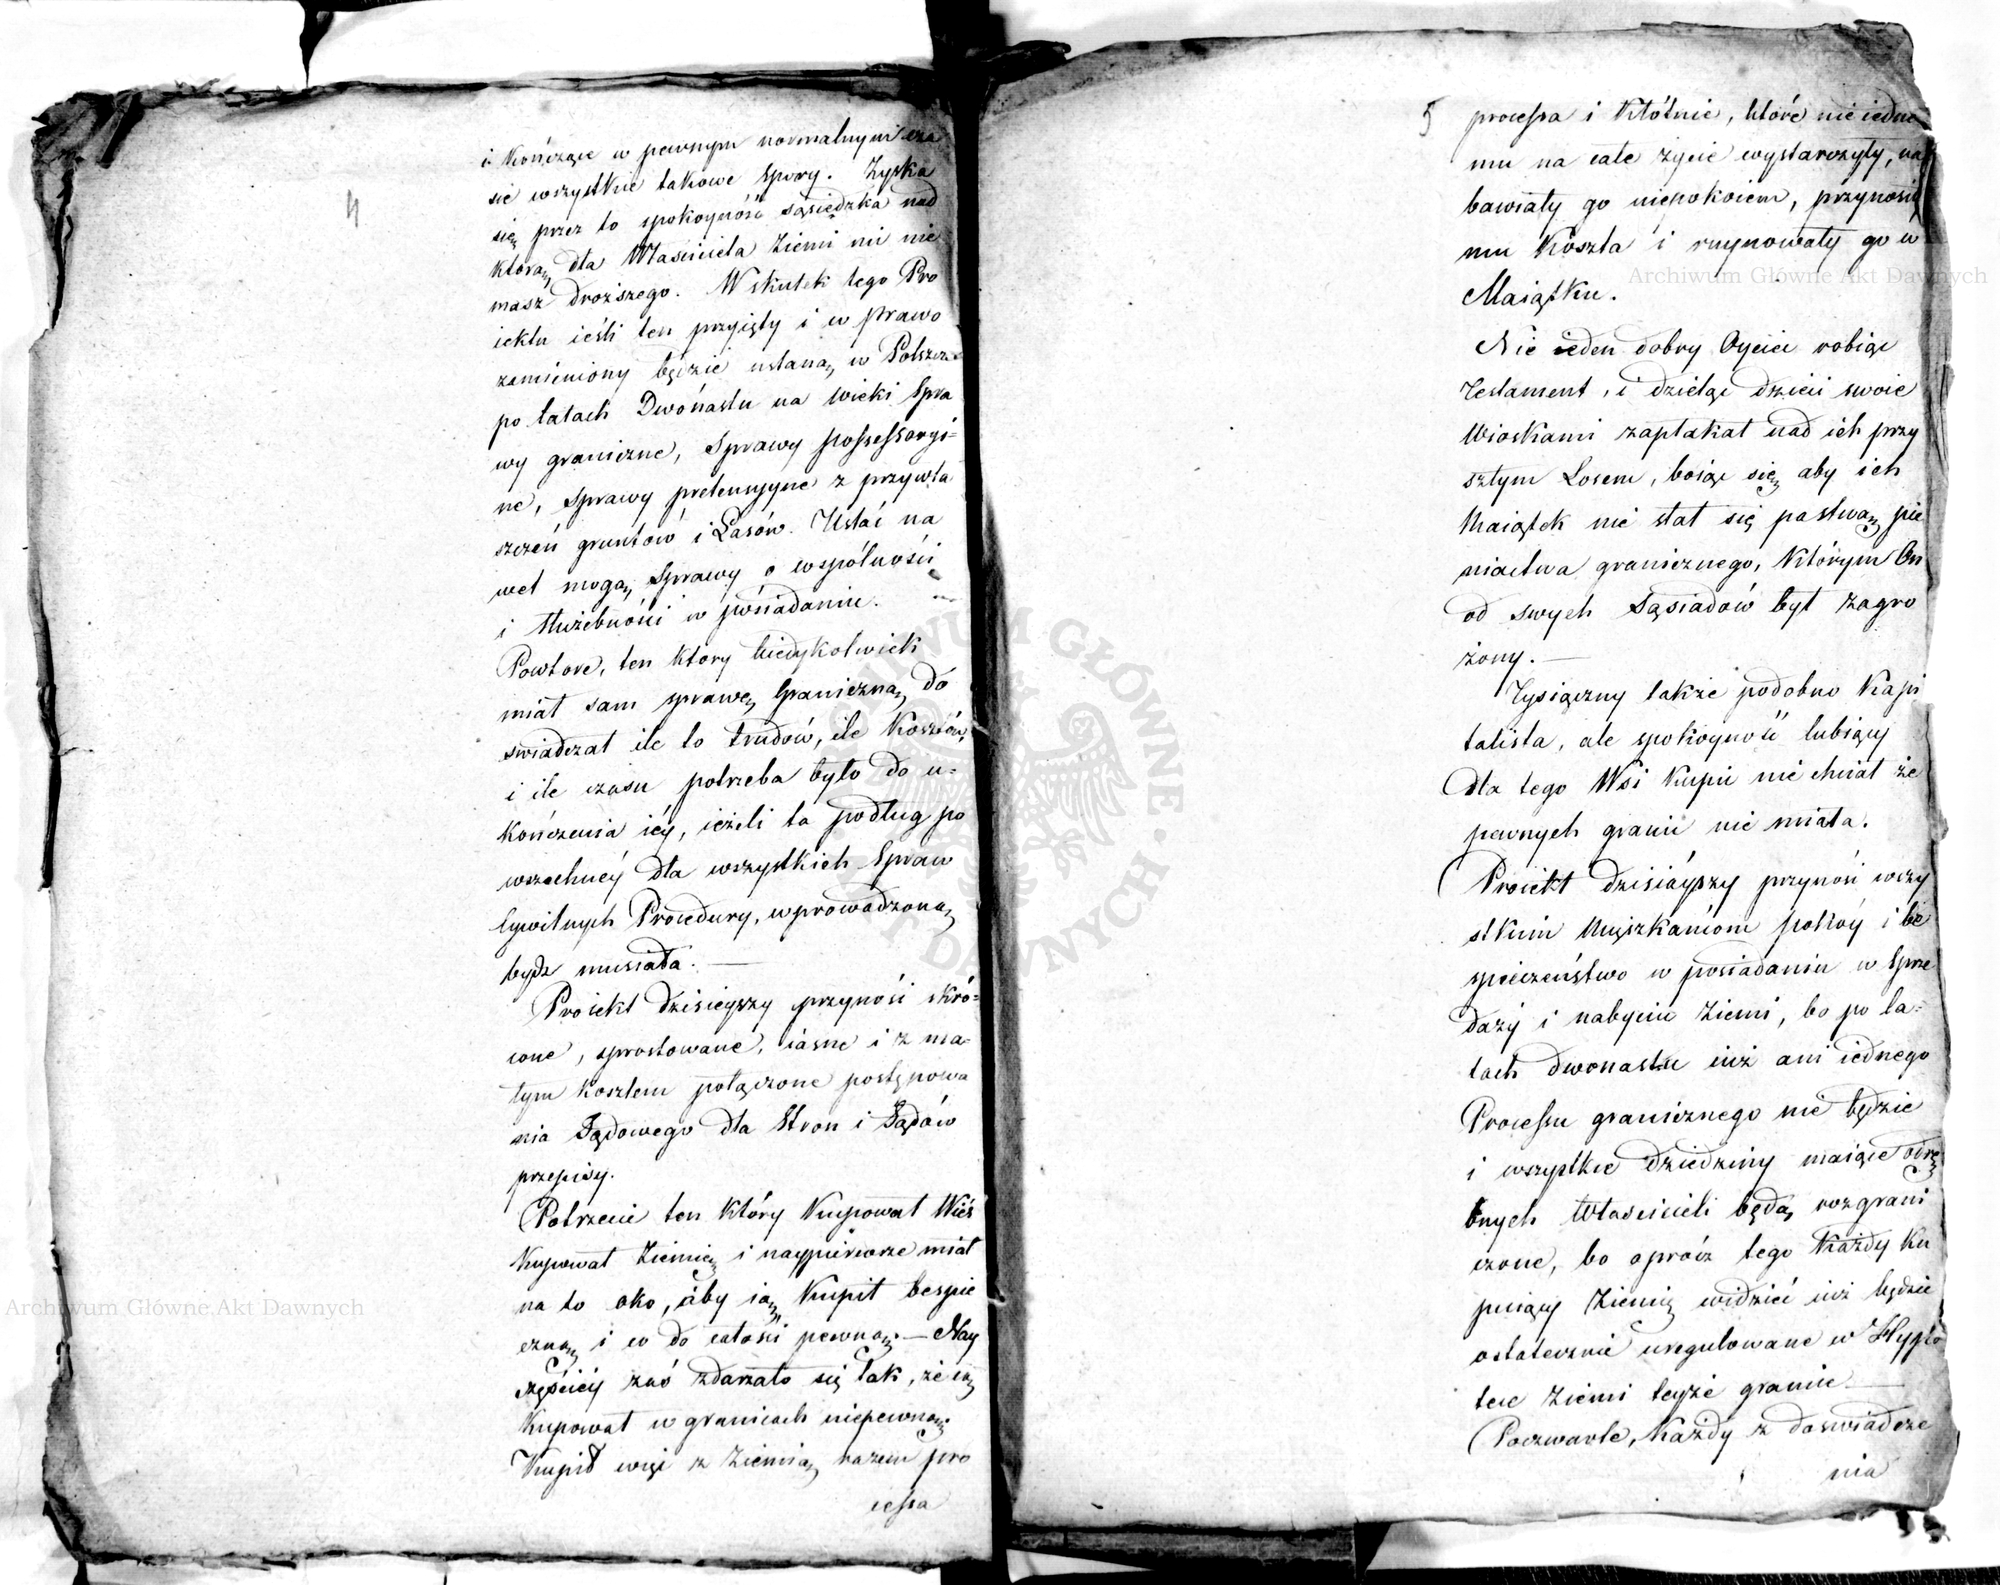 4
i kończące w pewnym normalnym cza
sie wszystkie takowe spory. Zyska
się przez to spokoyność sąsiedzka nad
którą dla Właściciela Ziemi nic nie
masz droższego. W skutek tego Pro
iektu ieśli ten przyięty i w prawo
zamieniony będzie ustaną w Polszcze
po latach Dwónastu na wieki Spra
wy graniczne, Sprawy possessoryi-
ne, Sprawy pretensyyne z przywła
szczeń gruntów i Lasów. Ustać na
wet mogą Sprawy o wspólności
i służebności w posiadaniu.
Powtore, ten ktory kiedykolwiek
miał sam sprawę Graniczną do
swiadczał ile to trudów, ile kosztów,
i ile czasu potrzeba było do u-
kończenia iéy, ieżeli ta podług po
wszechnéy dla wszystkich Spraw
Cywilnych Procedury, wprowadzoną
bydz musiała. —
Proiekt dzisieyszy przynosi skró-
cone, sprostowane, iasne i z ma-
łym kosztem połączone postępowa
nia Sądowego dla Stron i Sądów
przepisy.
Potrzecie ten który kupował Wieś
kupował Ziemię i naypierwsze miał
na to oko, aby ią kupił bespie
czną i co do całości pewną. — Nay
częściéy zaś zdarzało się tak, że ią
kupował w granicach niepewną.
Kupił więc z Ziemią razem pro
cessa
5
processa i kłótnie, któré nie iedne
mu na całe życie wystarczyły, na
bawiały go niepokoiem, przynosiły
mu koszta i ruynowały go w
Maiątku.
Nie ieden dobry Oyciec robiąc
Testament, i dzieląc dzieci swoie
Wioskami zapłakał nad ich przy
szłym Losem, boiąc się aby ich
Maiątek nie stał się pastwą pie
niactwa granicznego, którym On
od swych Sąsiadów był zagro
żony. —
Tysiączny także podobno Kapi
talista, ale spokoyność lubiący
dla tego Wsi kupić nie chciał że
pewnych granic nie miała.
Proiekt dzisiéyszy przynosi wszy
stkim Mięszkańcom pokóy i be
spieczeństwo w posiadaniu w Sprze
daży i nabyciu Ziemi, bo po la-
tach dwonastu iuż ani iednego
Processu granicznego nie będzie
i wszystkie dziedziny maiące odrę
bnych Właścicieli będą rozgrani
czone, bo oprócz tego każdy ku
puiący Ziemię widzieć iuż będzie
ostatecznie uregulowane w Hypo
tece Ziemi teyże granice —
Poczwarte, każdy z doswiadcze
nia
Archiwum Główne Akt Dawnych
Archiwum Główne Akt Dawnych
ARCHIWUM GŁÓWNE AKT DAWNYCH